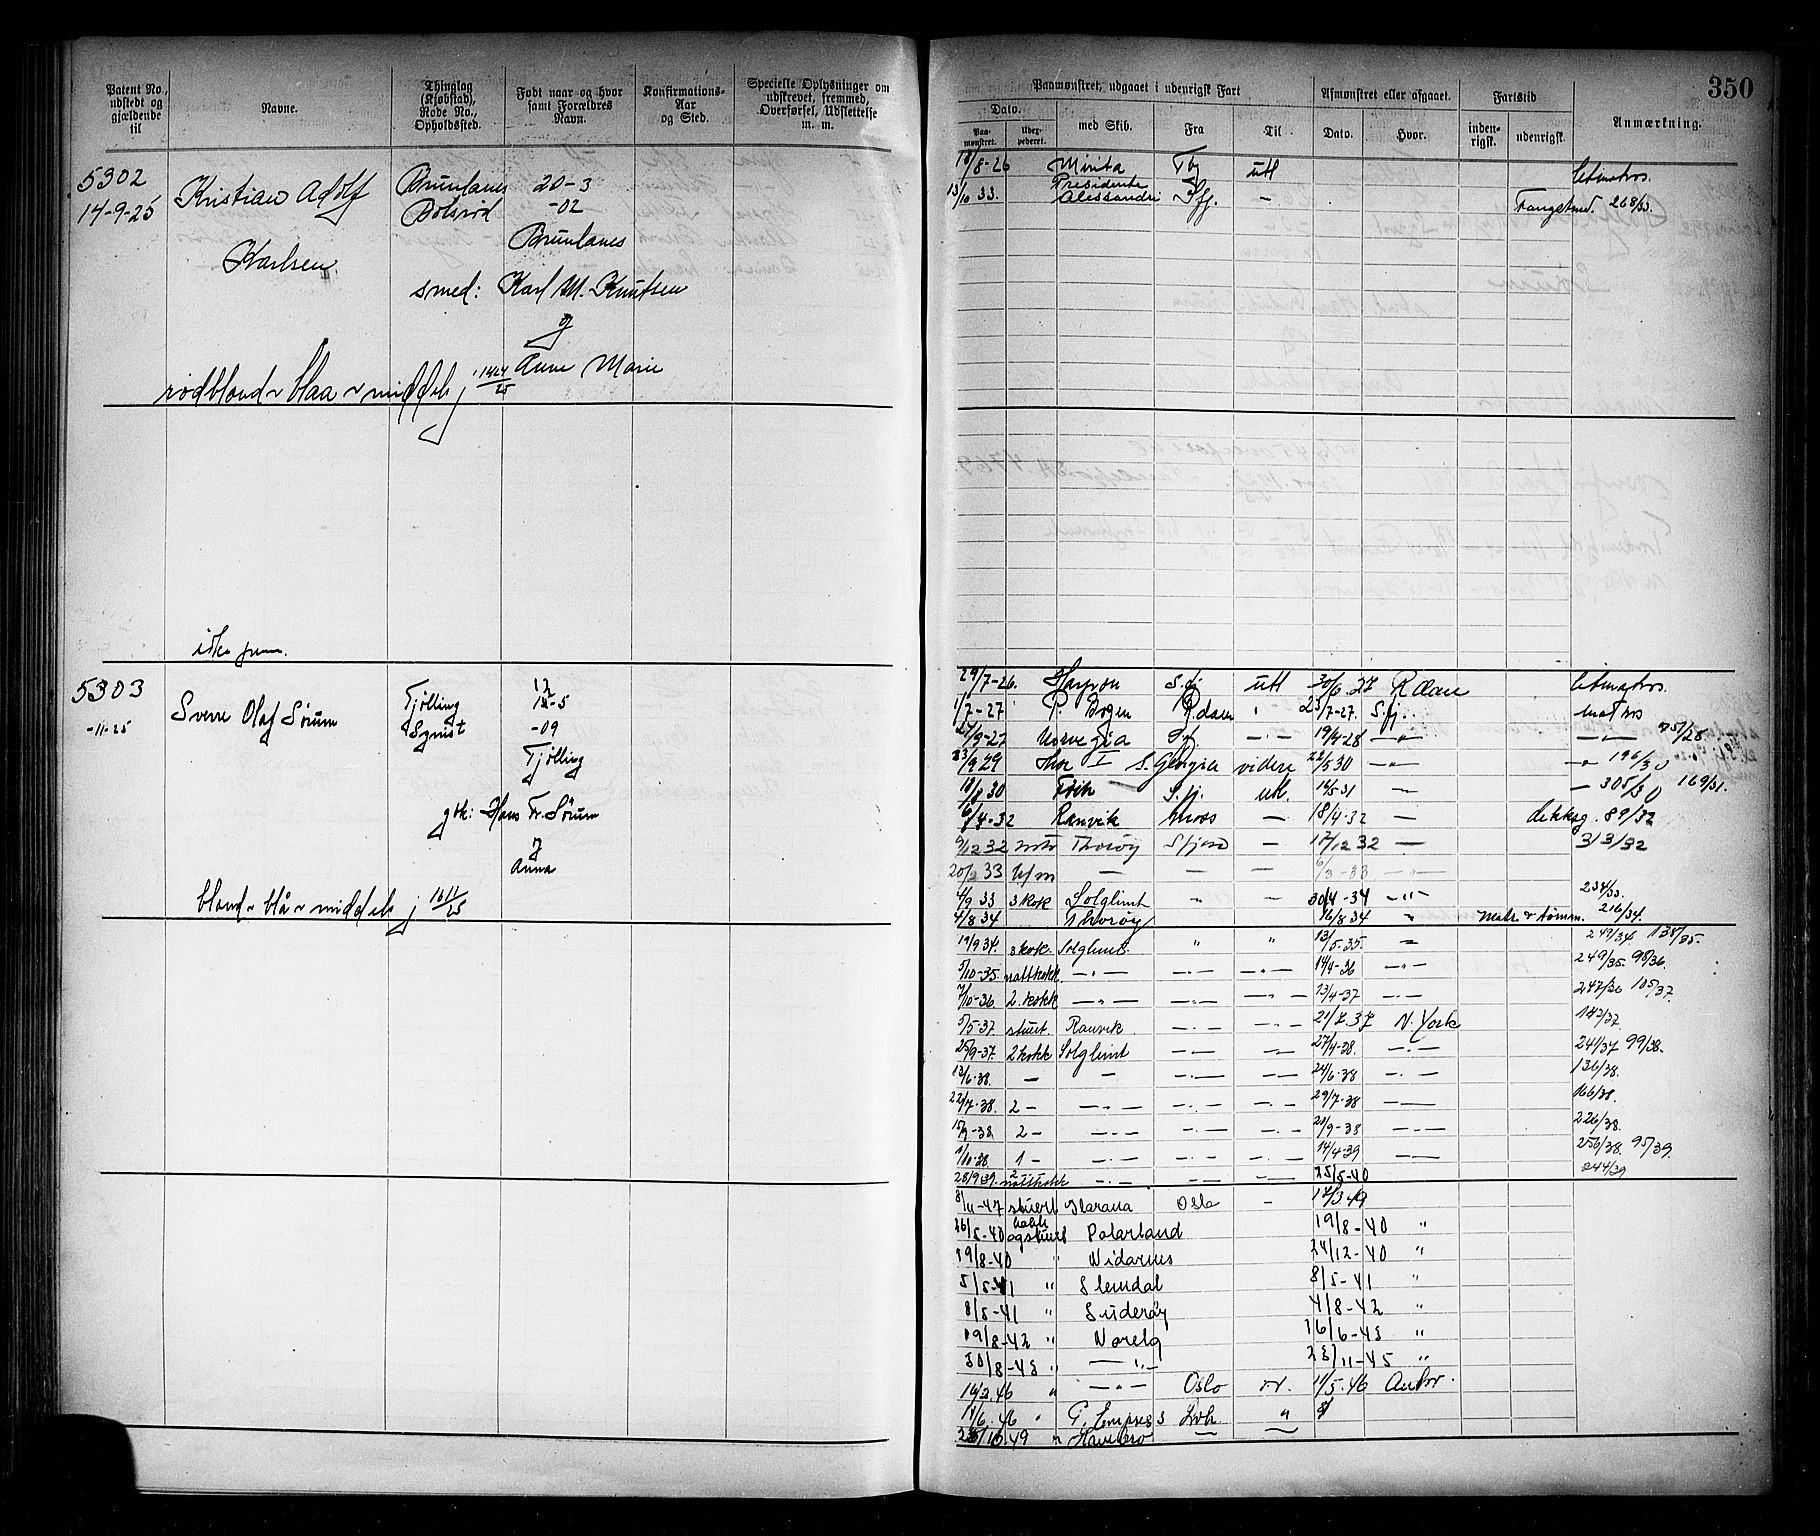 Patent No., udstedt og gjældende til
Navne.
Thinglag (Kjøbstad), Rode No., Opholdssted.
Født naar og hvor samt Forældres Navn.
Konfirmations- Aar og Sted.
Specielle Oplysninger om udskrevet, fremmed, Overførsel, Udslettelse m. m.
5302 Kristian Adolf Brunlanes 20-3
14-9-25 Bolsrød -02
Karlsen Brunlanes
smed: Karl M. Knutsen
og
Anne Marie
rødblond blaa middels
ikke
5303 Sverre Olaf Sørum Tjølling 12-5
-11-25 -09
Tjølling
gbr: Hans Fr. Sørum
og
Anna
blond blå middels
350
Paamønstret, udgaaet i udenrigsk Fart
Afmønstret eller afgaaet.
Fartstid
Anmærkning.
Dato.
Paa- mønstret.
med Skib.
Fra
Til
Dato.
Hvor.
inden- rigsk.
udenrigsk.
18/8-26 Mirita Tbg utl
13/10 33. Presidente Alessandri Sfj. — Fangstmd. 268/33.
29/7-26. S.fj utl 30/6 27 Rdam
1/7-27 P. Bogen Rdam 23/7-27. S.fj. matros
Norvegia Sfj. 19/4-28 — 75/28
23/9 29 Thor I S. Georgia videre 22/5 30 — 196/30
18/8 30 S.fj. utl. 14/5 31 — 305/30 169/31.
6/4-32 Ranvik Moss — 18/4-32 — dekksg. 89/32
9/12 32 Thorøy Sfjord — 17/12 32 — 313/32
20/2 33 — — 6/3-33 —
4/9 33 3 kok Solglimt " — 30/4-34 — 234/33.
4/8 34 Thorøy 16/8 34 " Matr. & tømm. 216/34.
19/9 34. 3 kok. Solglimt " " 13/5-35. — 249/34 138/35.
5/10-35 nattkokk — — — 14/4-36 — 249/35. 98/36.
7/10-36 2. kokk — — — 13/4-37 — 247/36 105/37.
5/5-37. stuert Ranvik — — 21/7.37 N. York 143/37.
25/9-37. 2 kokk Solglimt — — 27/4-38. — 241/37 99/38.
13/6-38. — — — — 24/6-38 — 136/38.
22/7-38. 2 — — — — 29/7-38 — 166/38.
15/9-38 2 — — — — 20/9-38 — 226/38.
1/10-38. 1 — — — — 14/4-39 — 256/38. 95/39.
28/9 39. 2 nattkokk — — — 25/5-40 244/39
8/11-47 stuert Oslo — 12/3 49
26/5-40 kokk og stuert Polarland 19/8-40 "
19/8-40 " Nidarnes 24/12-40 "
5/5-41 " Slemdal 8/5-41 "
8/5-41 " Suderøy 4/8-42 "
19/8-42 " Norelg 16/6-43 "
30/8-43 " — " — 23/11-45 "
14/2.46 " — " — Oslo 11/5.46
14/6.46 " "